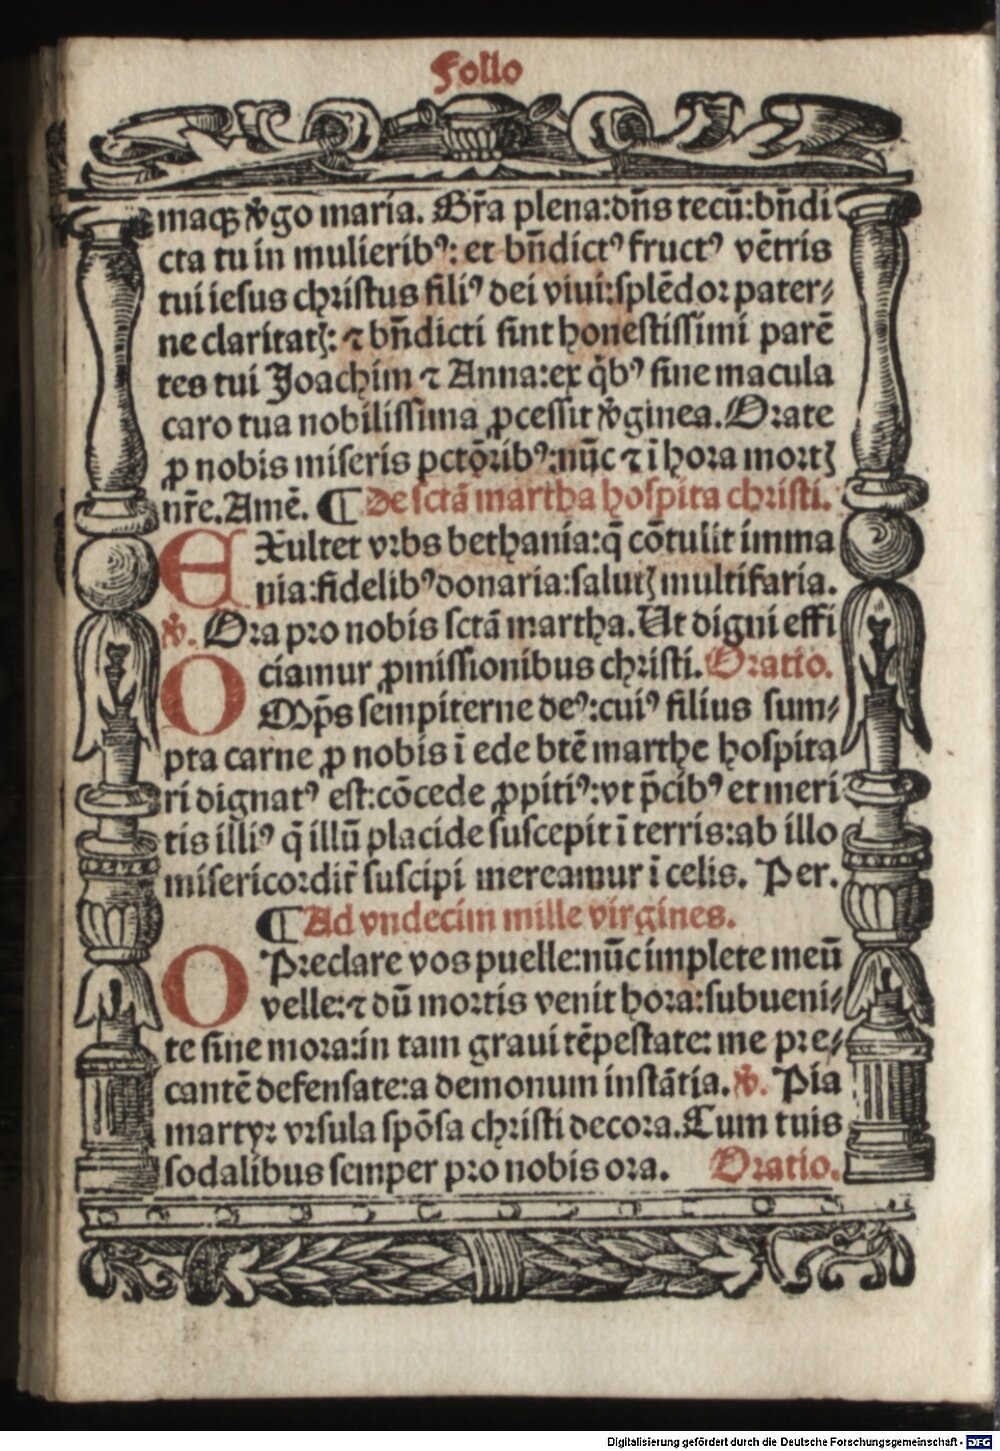 Folio
maqꝫ v̾go maria. Gr̄a plena:dn̄s tecū:bn̄di
cta tu in mulieribꝰ: et bn̄dictꝰ fructꝰ vētris
tui iesus christus filiꝰ dei viui:splēdor pater⸗
ne claritatꝭ: ⁊ bn̄dicti sint honestissimi parē
tes tui Joachim ⁊ Anna:ex q̄bꝰ sine macula
caro tua nobilissima ꝓcessit v̾ginea. Orate
ꝓ nobis miseris pctōribꝰ:nūc ⁊ ī hora mortꝭ
nr̄e. Amē. ¶ De sctā martha hospita christi.
EXultet vrbs bethania:q̄ cōtulit imma
nia:fidelibꝰ donaria:salutꝭ multifaria.
v̾. Ora pro nobis sctā martha. Ut digni effi
ciamur ꝓmissionibus christi. Oratio.
OMp̄s sempiterne deꝰ:cuiꝰ filius sum⸗
pta carne ꝓ nobis ī ede btē marthe hospita
ri dignatꝰ est:cōcede ꝓpitiꝰ:vt p̄cibꝰ et meri
tis illiꝰ q̄ illū placide suscepit ī terris:ab illo
misericordit̄ suscipi mereamur ī celis. Per.
¶ Ad vndecim mille virgines.
OPreclare vos puelle:nūc implete meū
velle:⁊ dū mortis venit hora:subueni⸗
te sine mora:in tam graui tēpestate: me pre⸗
cantē defensate:a demonum instātia. v̾. Pia
martyr vrsula spōsa christi decora. Cum tuis
sodalibus semper pro nobis ora. Oratio.
Digitalisierung gefördert durch die Deutsche Forschungsgemeinschaft - DFG